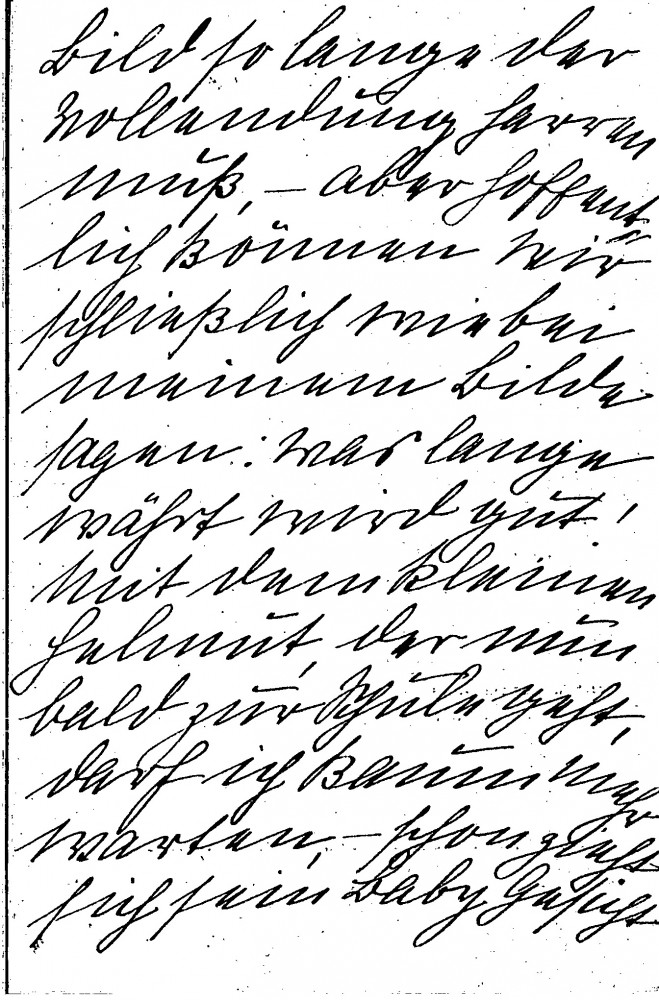 Bild so lange der
Vollendung harren
muß, – aber hoffent=
lich können wir
schließlich wie bei
meinem Bilde
sagen: was lange
währt wird gut!
Mit dem kleinen
Helmut, der nun
bald zur Schule geht,
darf ich kaum mehr
warten, – schon zieht
sich sein Baby Gesicht